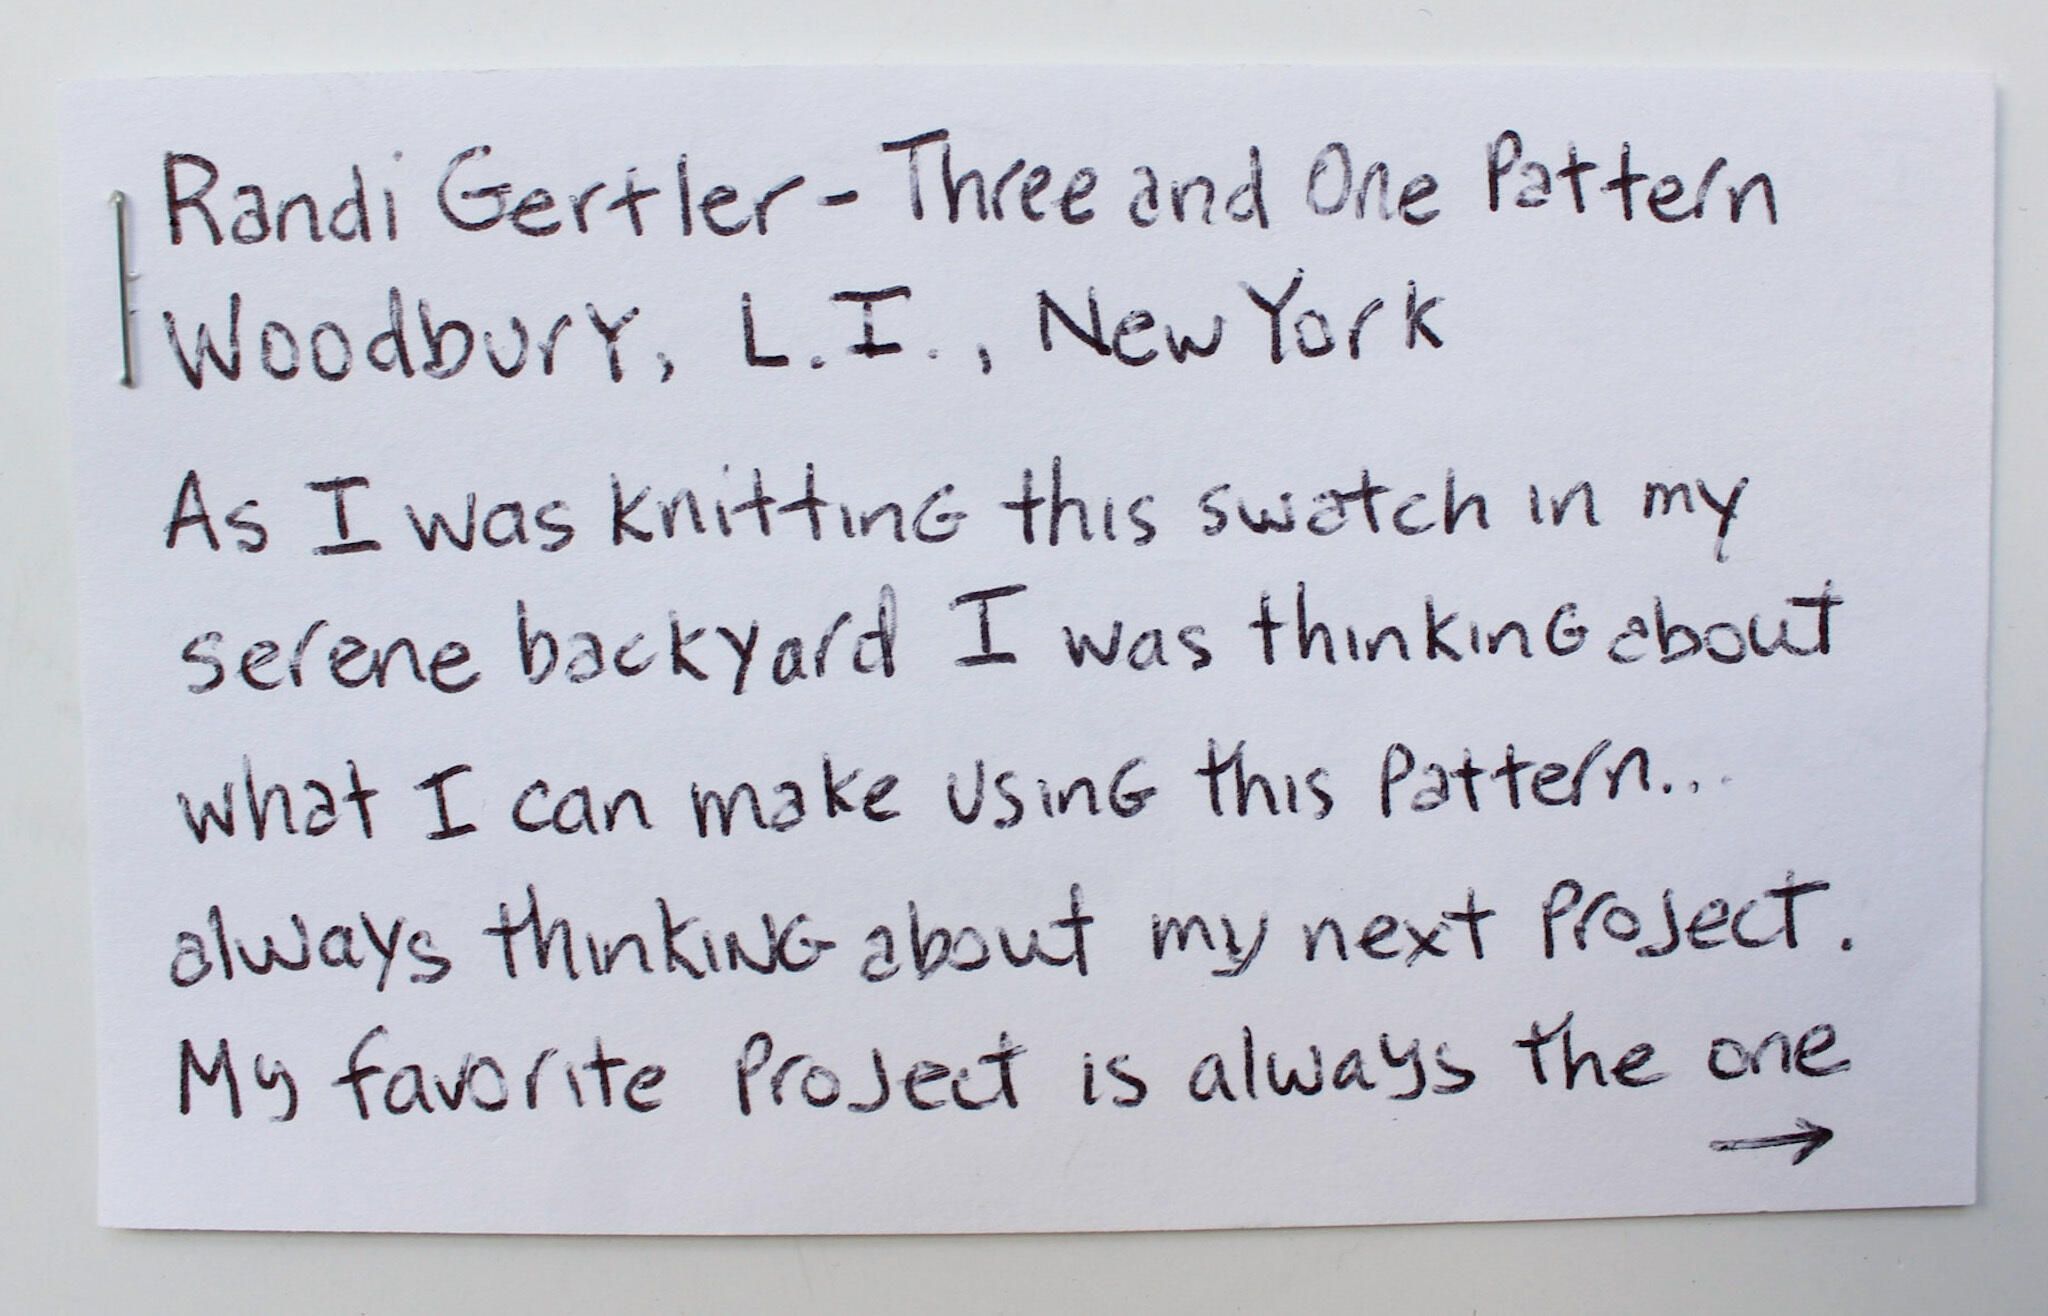 Randi Gertler - Three and One Pattern
Woodbury, L.I., New York
As I was knitting this swatch in my
serene backyard I was thinking about
what I can make using this pattern...
always thinking about my next project.
My favorite project is always the one
→